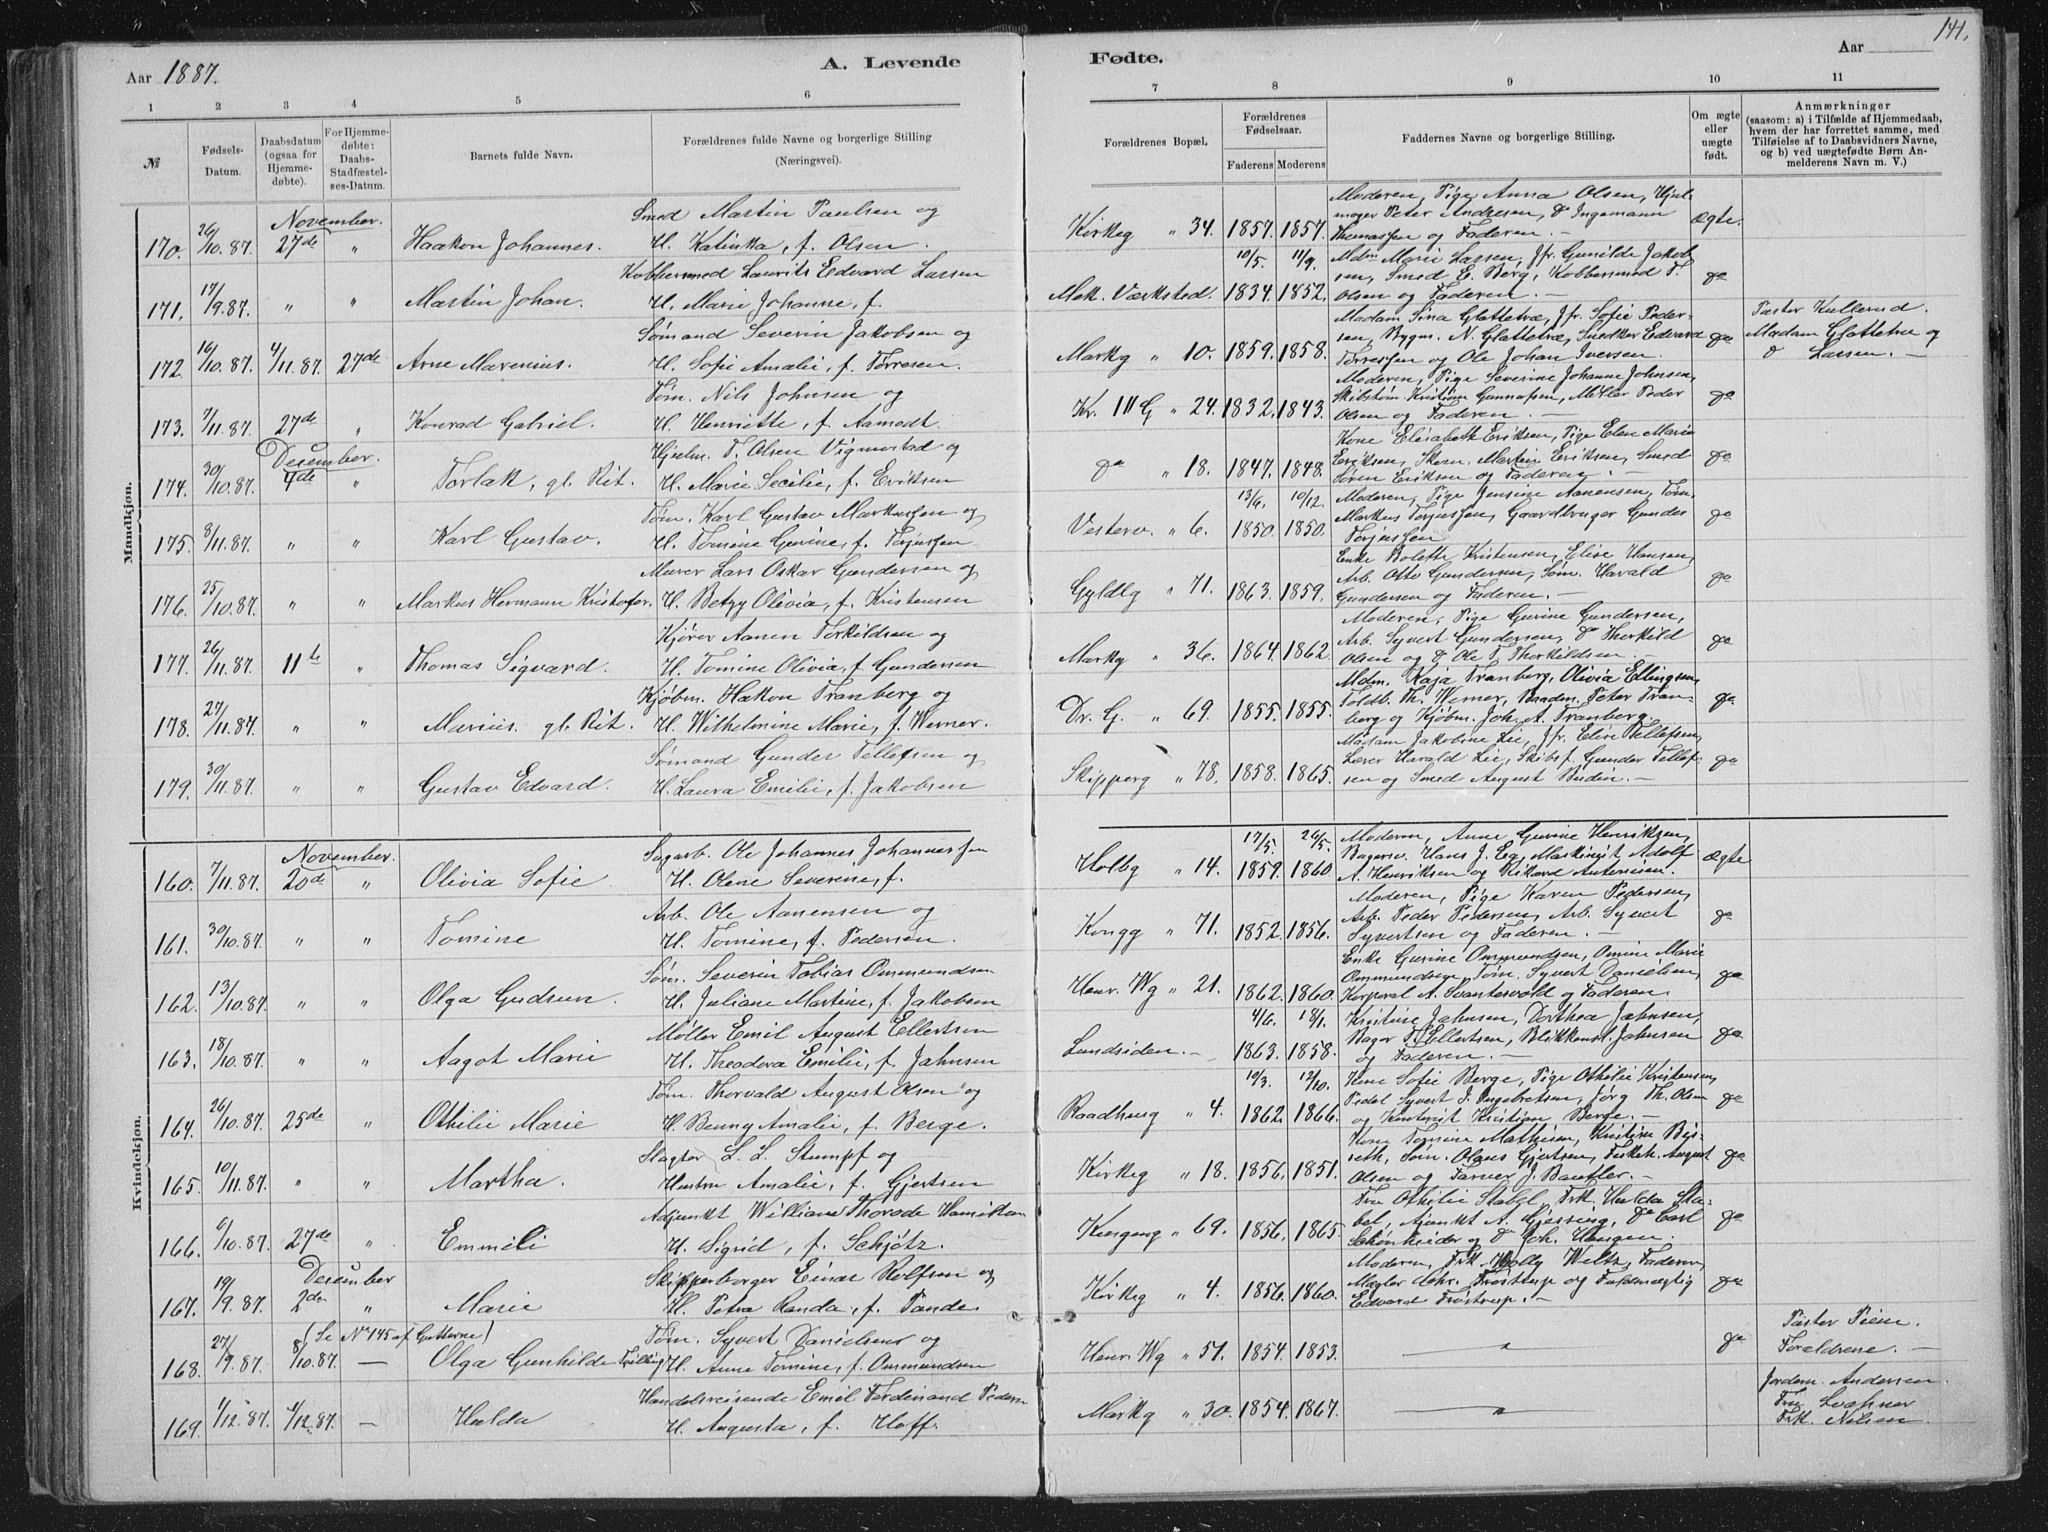 Aar 1887.
A. Levende
Fødte.
Aar
141.
1 2 3 4 5 6 7 8 9 10 11
№
Fødsels-Datum.
Daabsdatum (ogsaa for Hjemmedøbte).
For Hjemmedøbte: Daabs-Stadfæstelses-Datum.
Barnets fulde Navn.
Forældrenes fulde Navne og borgerlige Stilling
(Næringsvei).
Forældrenes Bopæl.
Forældrenes Fødselsaar.
Faderens Moderens
Faddernes Navne og borgerlige Stilling.
Om ægte eller uægte født.
Anmærkninger
(saasom: a) i Tilfælde af Hjemmedaab,
hvem der har forrettet samme, med
Tilføielse af to Daabsvidners Navne,
og b) ved uægtefødte Børn Anmelderens Navn m. V.)
Mandkjøn.
November.
Smed Martin Paulsen og
Moderen, Pige Anna Olsen, Hjul-
mager Peter Andresen, do Ingemann
170. 26/10.87. 27de " Haakon Johannes. H. Katinka, f. Olsen. Kirkeg " 34. 1857. 1857. Thomassen og Faderen. — ægte.
Kobbersmed Laurits Edvard Larsen 10/5. 11/9. Mdm Marie Larsen, Jfr. Gunilde Jakob-
sen, Smed E. Berg, Kobbersmed T.
171. 17/9.87. " " Martin Johan. H. Marie Johanne, f. Mek. Værksted. 1834. 1852. Olsen og Faderen. — do
Sømand Severin Jakobsen og Madam Sina Glattetræ, Jfr. Sofie Peder-
sen, Bygm. N. Glattetræ, Snedker Edvard
172. 16/10.87. 4/11.87. 27de Arne Marenius. H. Sofie Amalie, f. Torresen. Markg " 10. 1859. 1858. Torressen og Ole Johan Iversen. do Pastor Kullerud. Madam Glattetræ og do Larsen. —
Tøm. Nils Johnsen og Moderen, Pige Severine Johanne Johnsen,
Skibstøm. Kristian Gunnufsen, Møller Peder
173. 7/11.87. 27de " Konrad Gabriel. H. Henriette, f. Aamodt. Kr. III G " 24. 1832. 1843. Olsen og Faderen. — do
December.
Hjulm. T. Olsen Vigmostad og Kone Elisabeth Eriksen, Pige Elen Marie
Eriksen, Skom. Martin Eriksen, Smed
174. 30/10.87. 4de " Torlak, gl. Rit. H. Marie Secilie, f. Eriksen do " 18. 1847. 1848. Søren Eriksen og Faderen. — do
Tøm. Karl Gustav Markussen og 13/6. 10/12. Moderen, Pige Jensine Aanensen, Tøm.
Markus Torjussen, Gaardbruger Gunder
175. 8/11.87. " " Karl Gustav. H. Tomine Gurine, f. Torjussen Vesterv. " 6. 1850. 1850. Torjussen do
Murer Lars Oskar Gundersen og Enke Bolette Kristensen, Elise Hansen,
Arb. Otto Gundersen, Søm. Harald
176. 25/10.87. " " Markus Hermann Kristofer. H. Betzy Olivia, f. Kristensen Gyldlg " 71. 1863. 1859. Gundersen og Faderen. — do
Kjører Aanen Torkildsen og Moderen, Pige Gurine Gundersen,
Arb. Syvert Gundersen, do Thorkild
177. 26/11.87. 11te " Thomas Sigvard. H. Tomine Olivia, f. Gundersen Markg " 36. 1864. 1862. Olsen og do Ole T. Thorkildsen. — do
Kjøbm. Hakon Tranberg og Mdm. Kaja Tranberg, Olivia Ellingsen,
Toldb. Th. Werner, Baadsm. Peter Tran-
178. 27/11.87. " " Marius. gl. Rit. H. Wilhelmine Marie, f. Werner. Dr. G. " 69. 1855. 1855. berg og Kjøbm. Joh. A. Tranberg. do
Sømand Gunder Tellefsen og Madam Jakobine Lie, Jfr. Elise Tellefsen,
Lærer Harald Lie, Skibsf. Gunder Tellef-
179. 30/11.87. " " Gustav Edvard. H. Laura Emilie, f. Jakobsen Skipperg " 78. 1858. 1865. sen og Smed August Budin. — do
Kvindekjøn.
November.
Sagarb. Ole Johannes Johannessen 17/5. 26/5. Moderen, Anne Gurine Henriksen,
Bagersv. Hans J. Eg, Maskinist Adolf
160. 7/11.87. 20de " Olivia Sofie H. Olene Severine, f. Holbg " 14. 1859. 1860. A. Henriksen og Rikard Antonisen. ægte
Arb. Ole Aanensen og Moderen, Pige Karen Pedersen,
Arb. Peder Pedersen, Arb. Syvert
161. 30/10.87. " " Tomine H. Tomine, f. Pedersen. Kongg " 71. 1852. 1856. Syvertsen og Faderen. — do
Søm. Severin Tobias Ommundsen Enke Gurine Ommundsen, Omine Marie
Ommundsen, Tøm. Syvert Danielsen,
162. 13/10.87. " " Olga Gudrun. H. Juliane Martine, f. Jakobsen Henr. Wg " 21. 1862. 1860. Korporal A. Svantesvold og Faderen. do
Møller Emil August Ellertsen 4/6. 18/1. Kristine Jahnsen, Dorthea Jahnsen,
Bager T. Ellertsen, Blikkensl. Jahnsen
163. 18/10.87. " " Aagot Marie H. Theodora Emilie, f. Jahnsen Lundsiden. — 1863. 1858. og Faderen. — do
Tøm. Thorvald August Olsen og 10/3. 12/10. Kone Sofie Berge, Pige Othilie Kristensen,
Pedel Syvert J. Ingebretsen, Jørg. Th. Olsen
164. 26/10.87. 25de " Othilie Marie H. Benny Amalie, f. Berge. Raadhusg " 4. 1862. 1866. og Kontorist Kristian Berge. — do
Slagter L. L. Stumpf og Kone Tomine Mathisen, Kristine
Søm. Olaus Gjertsen, Fiskeh. August
165. 10/11.87. " " Martha. Hustru Amalie, f. Gjertsen Kirkeg " 18. 1856. 1851. Olsen og Farver J. Bautler. do
Adjunkt William Thorode Hamilton Fru Othilie Stabel, Frk. Hulda Sta-
bel, Adjunkt A. Gjessing, do Carl
166. 6/10.87. 27de " Emmeli H. Sigrid, f. Schjøtz. Kongensg " 69. 1856. 1865. Schønheider og do Joh. Haugen. do
December
Skipperborger Einar Rolfsen og Moderen, Frk. Molly Weltz, Faderen,
Mægler Chr. Frøstrup og Fuldmægtig
167. 19/9.87. 2den " Marie H. Petra Randa, f. Tande. Kirkeg " 4. 1856. 1860. Edvard Frøstrup. — do
(Se No 145 af Gutterne) Tøm. Syvert Danielsen og Pastor Piene.
168. 27/9.87. 8/10.87. — Olga Gunhilde Tvilling H. Anne Tomine, f. Ommundsen Henr. Wg " 51. 1854. 1853. — " — do Forældrene. —
Handelsreisende Emil Ferdinand Pedersen Jordem. Andersen.
169. 1/12.87. 4/12.87. — Hulda H. Augusta, f. Hoff. Markg " 30. 1854. 1867. — " — Fru Lochner
Frk. Nilsen